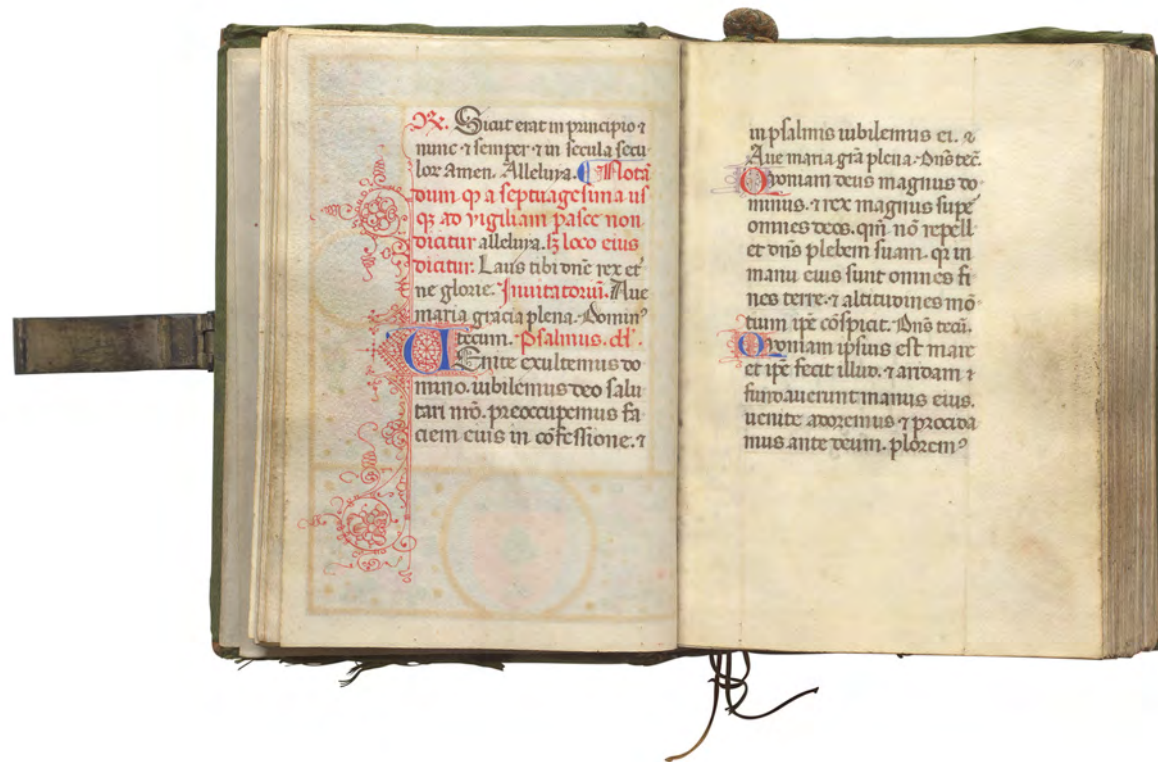 R. Sicut erat in principio ⁊
nunc ⁊ semper ⁊ in secula secu
lor amen. Alleluya. ¶ Notā
dum ꝙ a septuagesima us
qꝫ ad vigiliam pasce non
dicitur alleluya. sꝫ loco eius
dicitur: Laus tibi dn̄e rex et̾
ne glorie. Invitatoriū. Ave
maria gracia plena. Dominꝰ
tecum. Psalmus. dd̾.
Venite exultemus do
mino. iubilemus deo salu
tari nr̄o. preoccupemus fa
ciem eius in cōfessione. ⁊
in psalmis iubilemus ei. ⁊
Ave maria grā plena. Dn̄s tec̄.
Quoniam deus magnus do
minus. ⁊ rex magnus supe
omnes deos. qm̄ nō repell
et dn̄s plebem suam. qr in
manu eius sunt omnes fi
nes terre. ⁊ altitudines mō
tium ip̄e cōspicit. Dn̄s tecū.
Quoniam ipsius est mare
et ip̄e fecit illud. ⁊ aridam ⁊
fundaverunt manus eius.
venite adoremus ⁊ procida
mus ante deum. ploremꝰ